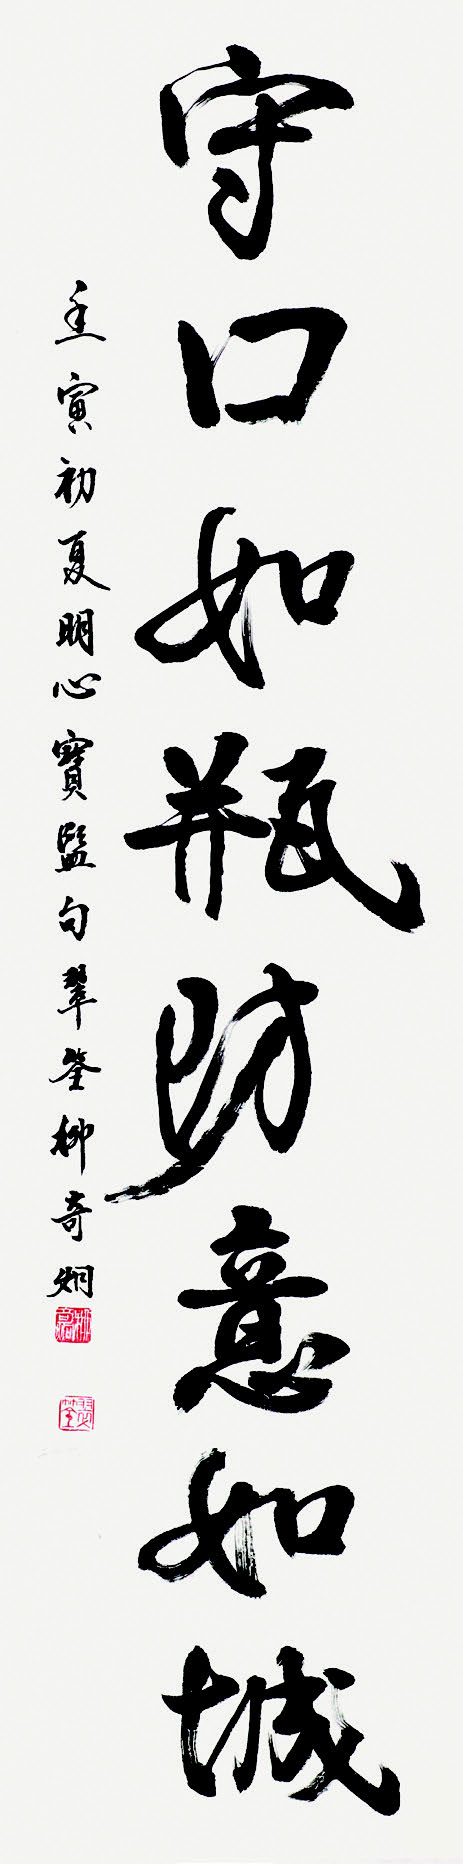 守口如瓶防意如城
壬寅初夏明心寶監句翠筌柳奇